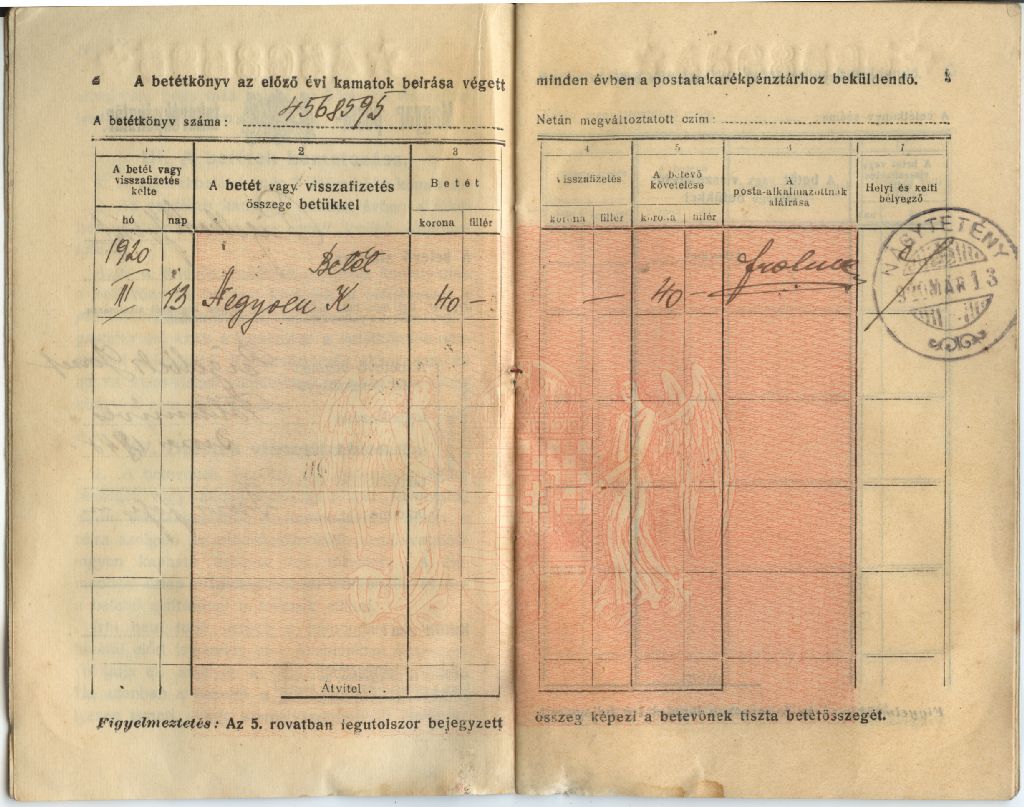 A betétkönyv az előző évi kamatok beírása végett minden évben a postatakarékpénztárhoz beküldendő.
A betétkönyv száma: 4568595
Netán megváltoztatott czím:
1 2 3 4 5 6 7
A betét vagy visszafizetés kelte
hó nap
A betét vagy visszafizetés összege betükkel
Betét
korona fillér
visszafizetés
korona fillér
A betevő követelése
korona fillér
A posta-alkalmazottnak aláírása
Helyi és kelti bélyegző
1920
Betét
III 13 Negyven K 40 — — 40 —
NAGYTÉTÉNY
920 MAR 13
Átvitel . .
Figyelmeztetés: Az 5. rovatban legutolszor bejegyzett összeg képezi a betevőnek tiszta betétösszegét.